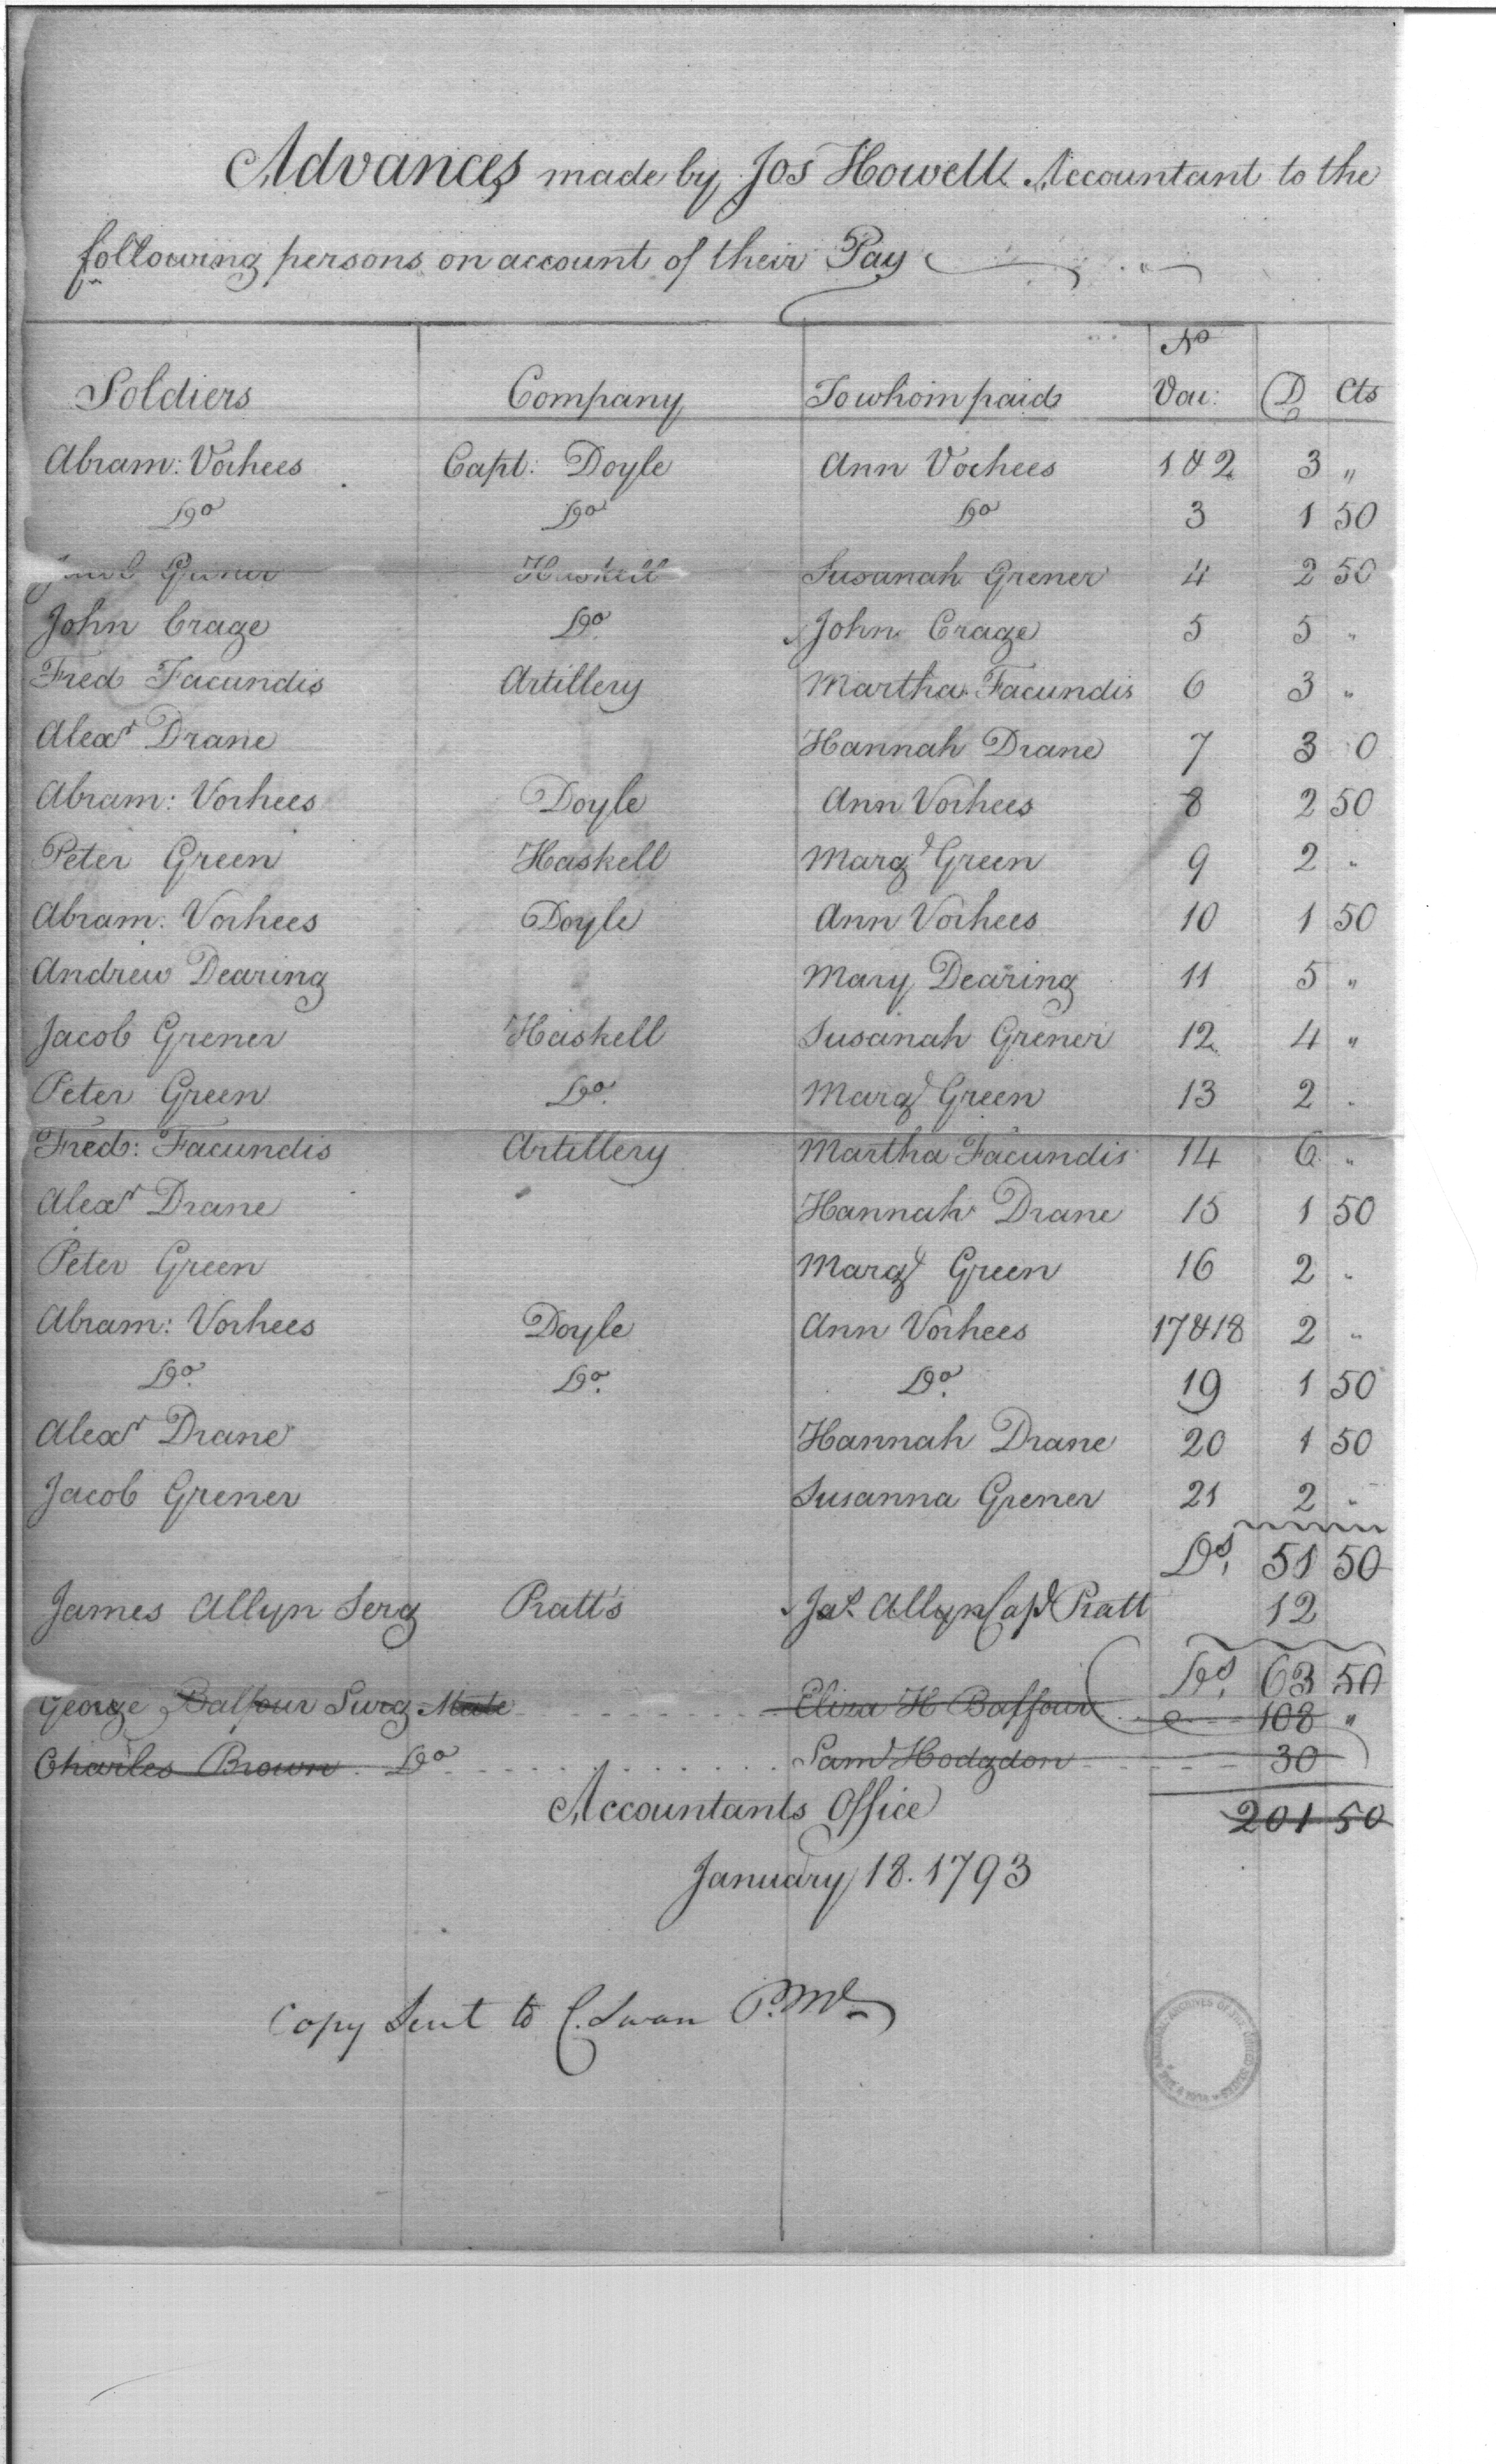 Advances made by Jos Howell Accountant to the
following persons on account of their Pay
No
Soldiers Company To whom paid Vou: D Cts
Abram: Vorhees Capt: Doyle Ann Vorhees 1 & 2 3 "
Do Do Do 3 1 50
Grener Haskell Susanah Grener 4 2 50
John Crage Do John Crage 5 5 "
Fred Facundis Artillery Martha Facundis 6 3 "
Alexr Drane Hannah Drane 7 3 0
Abram: Vorhees Doyle Ann Vorhees 8 2 50
Peter Green Haskell Margt Green 9 2 "
Abram: Vorhees Doyle Ann Vorhees 10 1 50
Andrew Dearing Mary Dearing 11 5 "
Jacob Grener Haskell Susanah Grener 12 4 "
Peter Green Do. Margt Green 13 2 .
Fred: Facundis Artillery Martha Facundis 14 6 "
Alexr Drane Hannah Drane 15 1 50
Peter Green Margt Green 16 2 .
Abram: Vorhees Doyle Ann Vorhees 17 & 18 2 "
Do. Do. Do. 19 1 50
Alexr Drane Hannah Drane 20 1 50
Jacob Grener Susanna Grener 21 2 "
Ds, 51 50
James Allyn Serg Pratt's Jas. Allyn Capt Pratt 12
Ds, 63 50
George Balfour Surg Mate Eliza H Balfour 108 "
Charles Brown Do Saml Hodgdon 30
Accountants Office 201 50
January 18. 1793
Copy Sent to C. Swan P.Mr